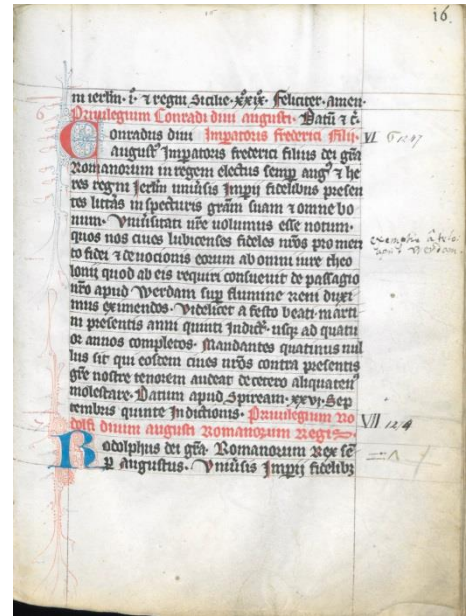 16.
15
in ierlm · i · ⁊ regni Sicilie · xxix · feliciter · amen ·
Priuilegium Conradi diui augusti · Datū ⁊ c̄ ·
Conradus diui Imperatoris frederici filii ·
VI
1247
august⁹ Imperatoris frederici filius dei grā
Romanorum in regem electus semp aug⁹ ⁊ he
res regni Jerlm vniuersis Impij fidelibus presen
tes littās inspecturis grām suam ⁊ omne bo
num · Vniūsitati nr̄e volumus esse notum ·
quos nos ciues lubicenses fideles nr̄os pro meri
to fidei ⁊ deuocionis eorum ab omni iure theo
lonij quod ab eis requiri consueuit de passagio
nr̄o apud Werdam sup flumine reni duxi
mus eximendos · Videlicet a festo beati marti
ni presentis anni quinti Indict̄ · usq ad quatu
or annos completos · Mandantes quatinus nul
lus sit qui eosdem ciues nr̄os contra presentis
gr̄e nostre tenorem audeat decetero aliquaten⁹
molestare · Datum apud Spiream · xxvj · Sep
tembris quinte Indictionis · Priuilegium Ro
dolfi diuini augusti Romanorum Regis
VII
Rodolphus dei grā · Romanorum Rex sē
p augustus · Vniūsis Impij fidelibȝ